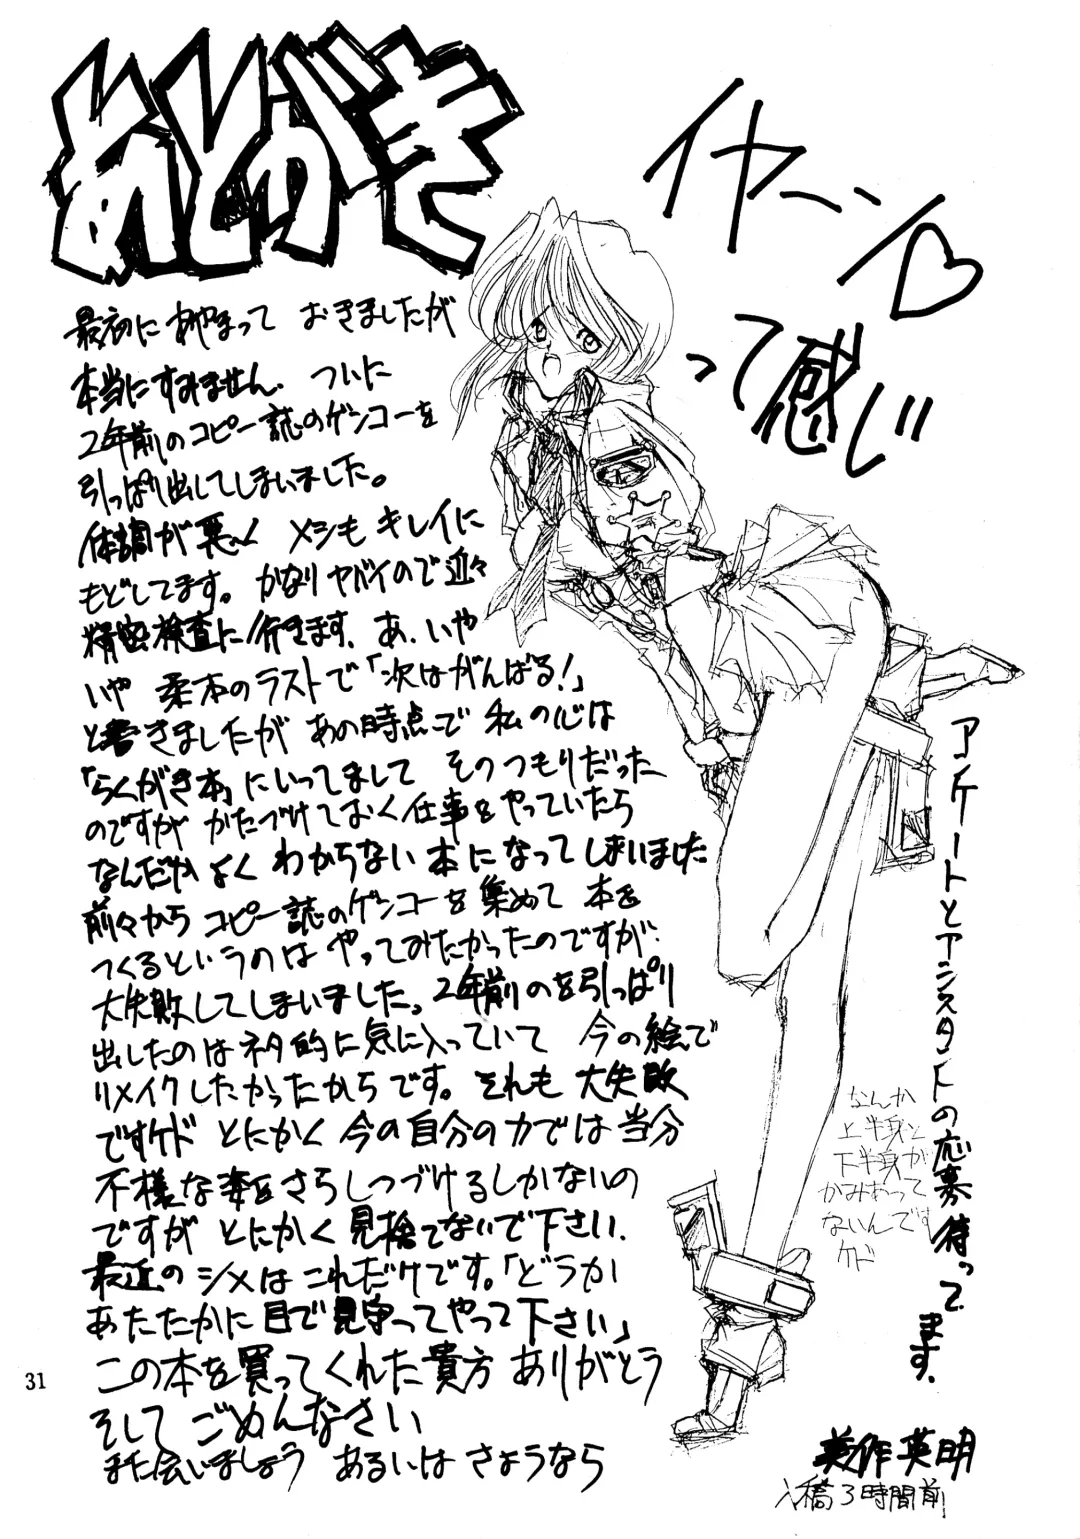 あとがき
最初にあやまって おきましたが
本当にすみません。 ついに
2年前のコピー誌のゲンコーを
引っぱり出してしまいました。
体調が悪く メシも キレイに
もどしてます。 かなりヤバイので近々
精密検査に行きます。 あ、いや
いや 柔本のラストで「次はがんばる!」
と書きましたが あの時点で 私の心は
「らくがき本」にいってまして そのつもりだった
のですが かたづけておく仕事をやっていたら
なんだかよく わからない 本になってしまいました
前々から コピー誌のゲンコーを 集めて 本を
つくるというのは やってみたかったのですが、
大失敗してしまいました。 2年前のを引っぱり
出したのはネタ的に気に入っていて 今の絵で
リメイクしたかったからです。 それも 大失敗
ですケド とにかく 今の自分の力では当分
不様な姿をさらしつづけるしかないの
ですが とにかく 見捨てないで下さい。
最近の シメは これだけです。「どうか
あたたかに 目で 見守ってやって下さい」
この本を買ってくれた貴方 ありがとう
そして ごめんなさい
また会いましょう あるいは さようなら
イヤーン♡
って感じ
アンケートとアシスタントの応募待ってます。
なんか
上半身と
下半身が
かみあって
ないんです
ケド
美作英明
入稿3時間前
31